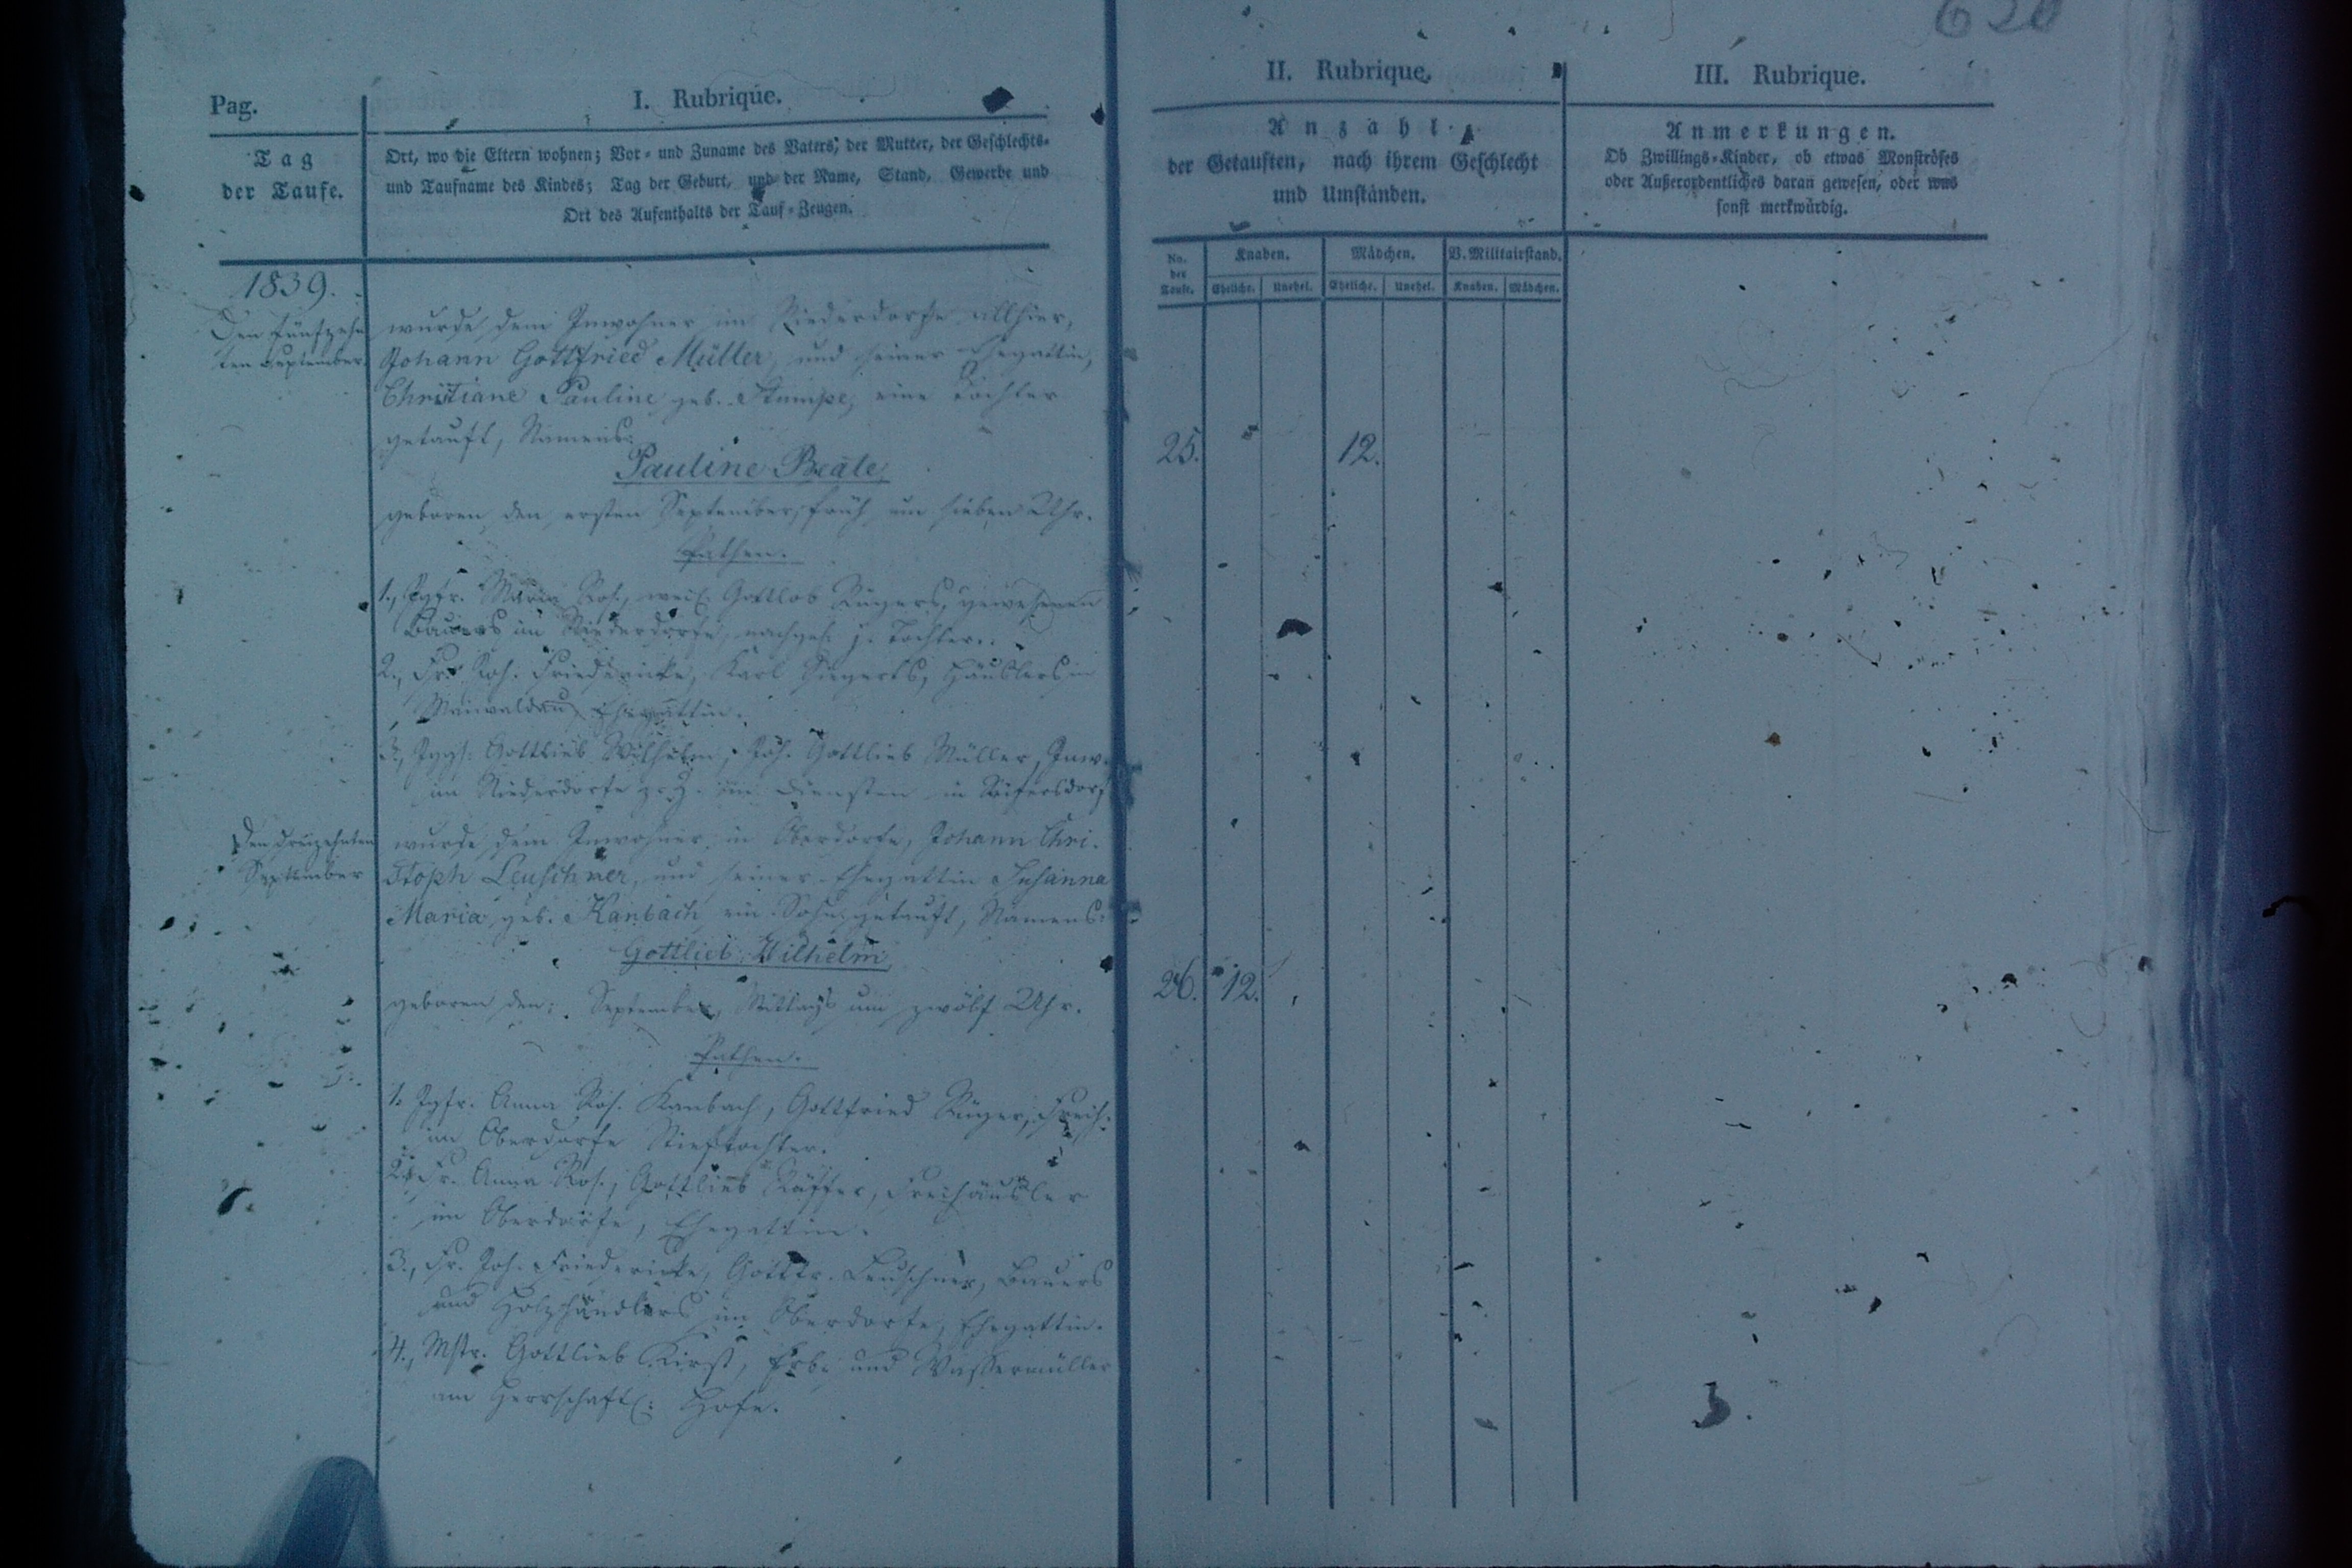 620
Pag.
I. Rubrique.
II. Rubrique.
III. Rubrique.
Tag
der Taufe.
Ort, wo die Eltern wohnen; Vor- und Zuname des Vaters, der Mutter, der Geschlechts-
und Taufname des Kindes; Tag der Geburt, und der Name, Stand, Gewerbe und
Ort des Aufenthalts der Tauf-Zeugen.
Anzahl
der Getauften, nach ihrem Geschlecht
und Umständen.
Anmerkungen.
Ob Zwillings-Kinder, ob etwas Monströses
oder Außerordentliches daran gewesen, oder was
sonst merkwürdig.
No. der Taufe.
Knaben.
Mädchen.
V. Militairstand.
Eheliche. Unehel. Eheliche. Unehel. Knaben. Mädchen.
1839.
Den fünfzehn
ten September.
wurde dem Inwohner im Niederdorfe allhier,
Johann Gottfried Müller, und seiner Ehegattin,
Christiane Pauline, geb. Stumpe, eine Tochter
getauft, Namens:
Pauline Beate,
25. 12.
geboren den ersten September, früh um sieben Uhr.
Pathen.
1., Jgfr. Maria Ros., weil. Gottlob Rügers, gewesenen
Bauers im Niederdorfe, nachgel. j. Tochter.
2., Fr. Joh. Friedericke, Karl Siegerts, Häuslers in
Maiwaldau, Ehegattin.
3., Jggs. Gottlieb Wilhelm, Joh. Gottlieb Müller, Inw.
im Niederdorfe z. Z. im Diensten in Seifersdorf
Den dreizehnten
September
wurde dem Inwohner in Oberdorfe, Johann Chri-
stoph Leuschner, und seiner Ehegattin Susanna
Maria, geb. Kanbach ein Sohn getauft, Namens:
Gottlieb Wilhelm,
26. 12.
geboren den: September, Mittags um zwölf Uhr.
Pathen.
1. Jgfr. Anna Ros. Kanbach, Gottfried Rüger, Freih.
im Oberdorfe Stieftochter.
2., Fr. Anna Ros., Gottlieb Käffer, Freihäusler
im Oberdorfe, Ehegattin.
3., Fr. Joh. Friedericke, Gottfr. Leuschner, Bauers
und Holzhändlers im Oberdorfe, Ehegattin.
4., Mstr. Gottlieb Kirst, Erb- und Wassermüller
am Herrschaftl: Hofe.